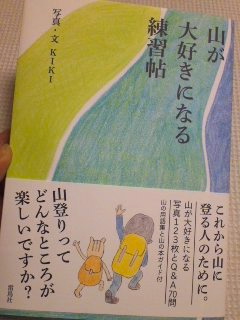 山が
大好きになる
練習帖
写真・文 KIKI
これから山に
登る人のために。
山が大好きになる
写真123枚とQ&A70問
山の用語集と山の本ガイド付
山登りって
どんなところが
楽しいですか？
雷鳥社